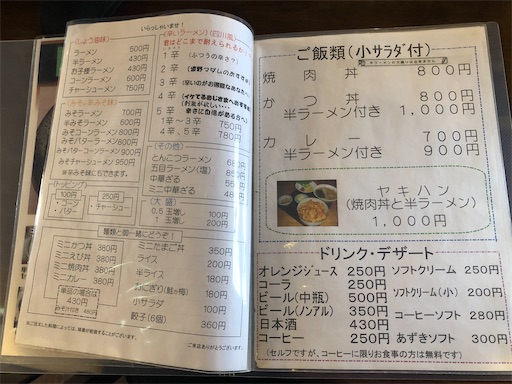 いらっしゃいませ！
(しょうゆ味)
ラーメン 500円
半ラーメン 430円
お子様ラーメン 430円
コーンラーメン 600円
チャーシューメン 750円
(みそ・辛みそ味)
みそラーメン 700円
みそラーメン 600円
みそコーンラーメン 800円
みそバターラーメン 800円
みそバターコーンラーメン 900円
みそチャーシューメン 950円
※辛みそ味にもできます。
(トッピング)
100円
・コーン
・バター
250円
・チャーシュー
(辛いラーメン)(四川風)
君はどこまで耐えられるか！
1 辛 (ふつうの辛さ？)
2 辛
3 辛
4 辛
5 辛
1 ～ 3 辛 750円
4 辛、5 辛 780円
(その他)
とんこつラーメン
五目ラーメン(塩)
中華ざる
ミニ中華ざる
(大盛)
0.5玉増し 100円
1 玉増し 200円
麺類と御一緒にどうぞ！
ミニかつ丼 380円
ミニえび丼 380円
ミニ焼肉丼 380円
ミニカレー 380円
単品の場合は
430円
みそ汁付き 480円
ミニたまご丼 350円
ライス 200円
半ライス 180円
おにぎり(鮭or梅)
小サラダ
餃子(6個) 360円
ご来店ありがとうございます。
ご飯類(小サラダ付)
焼肉丼 800円
かつ丼 800円
半ラーメン付き 1,000円
カレー 700円
半ラーメン付き 900円
ヤキハン
(焼肉丼と半ラーメン)
1,000円
ドリンク・デザート
オレンジジュース 250円 ソフトクリーム 250円
コーラ 250円
ビール(中瓶) 500円 ソフトクリーム(小) 200円
ビール(ノンアル) 350円 コーヒーソフト 280円
日本酒 430円
コーヒー 250円 あずきソフト 300円
(セルフですが、コーヒーに限りお食事の方は無料です)